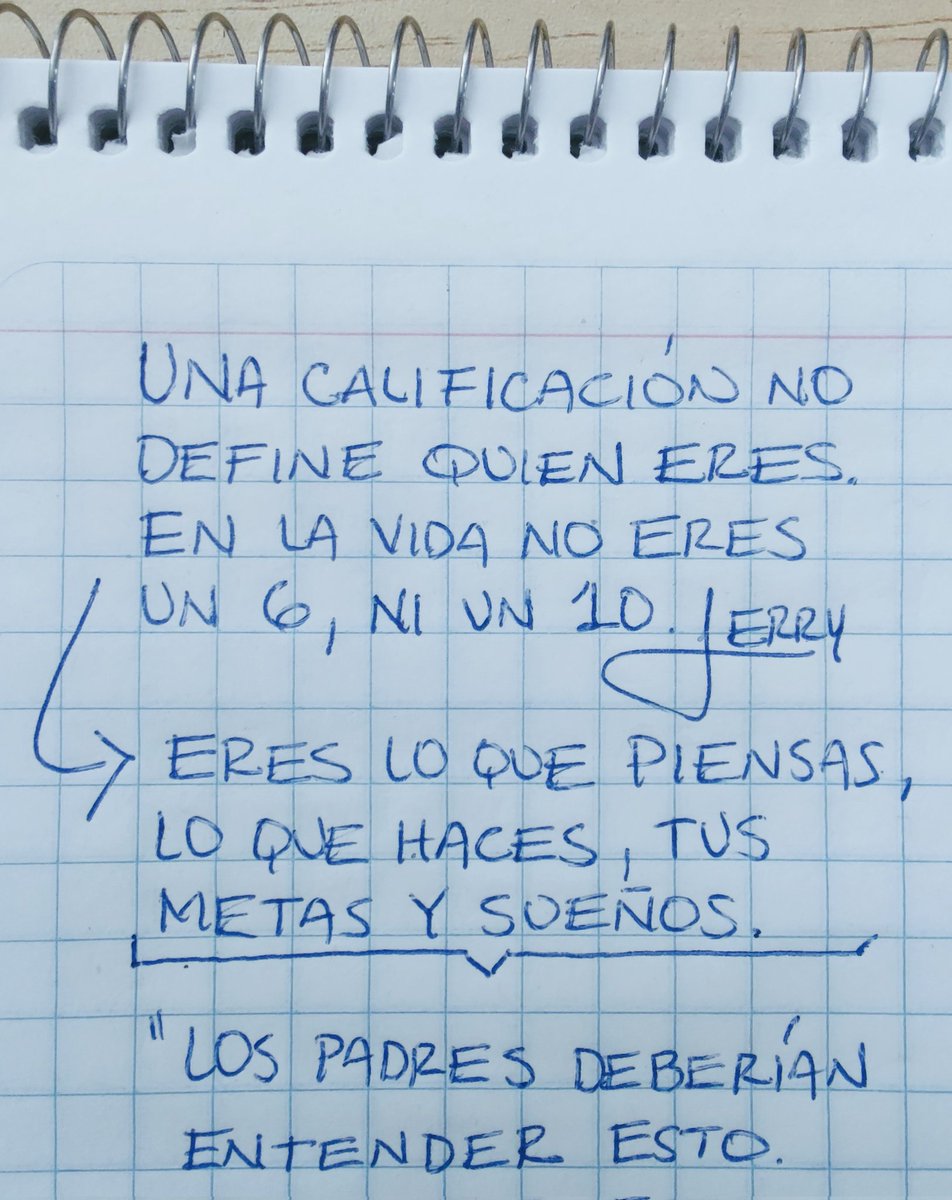 UNA CALIFICACIÓN NO
DEFINE QUIEN ERES.
EN LA VIDA NO ERES
UN 6, NI UN 10. JERRY
ERES LO QUE PIENSAS,
LO QUE HACES, TUS
METAS Y SUEÑOS.
"LOS PADRES DEBERÍAN
ENTENDER ESTO.